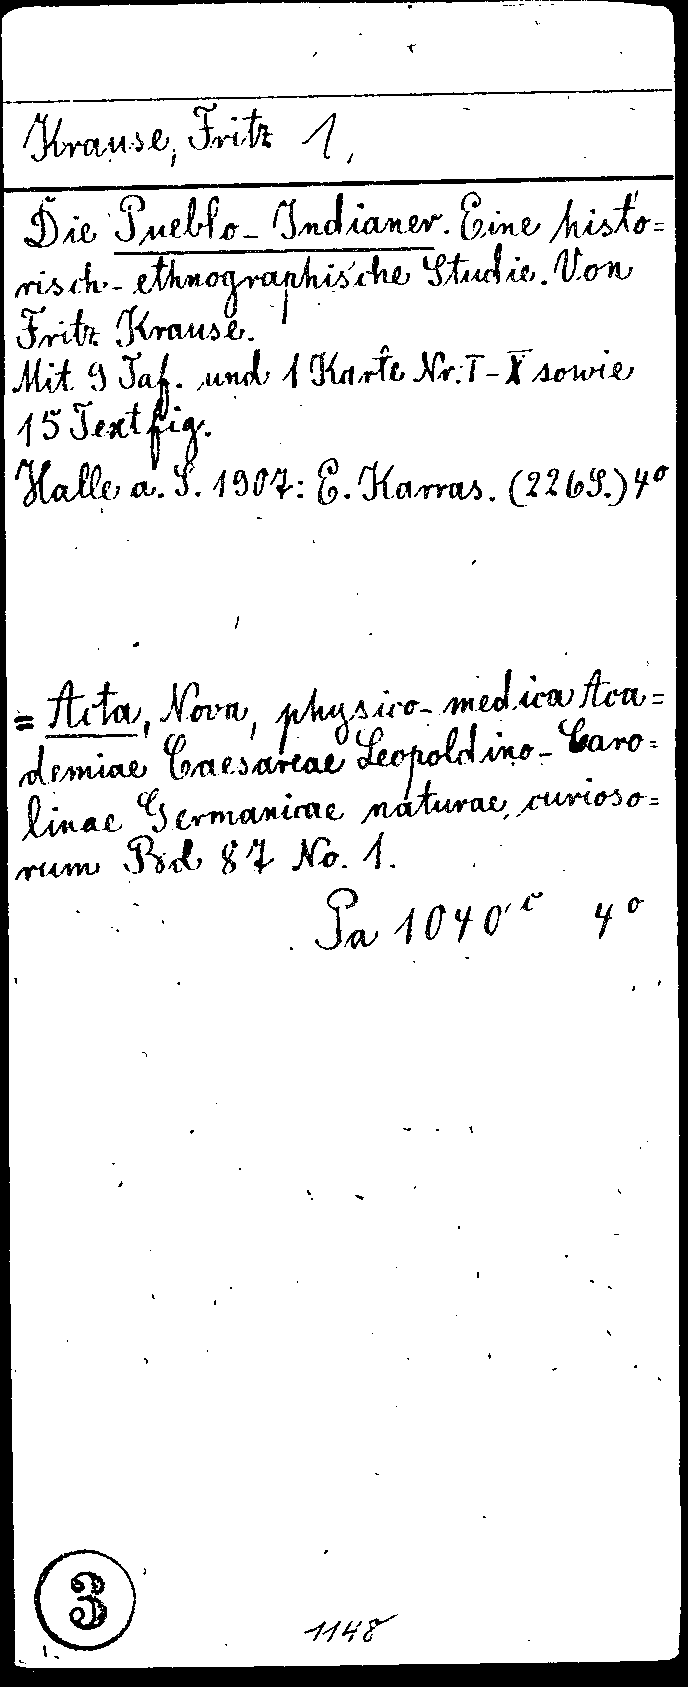 Krause, Fritz 1,
Die Pueblo-Indianer. Eine histo=
risch-ethnographische Studie. Von
Fritz Krause.
Mit 9 Taf. und 1 Karte Nr. I-X sowie
15 Textfig.
Halle a. S. 1907: E. Karras. (226 S.) 4°
= Acta, Nova, physico-medica Aca=
demiae Caesareae Leopoldino-Caro=
linae Germanicae naturae curioso=
rum Bd 87 No. 1.
Pa 1040 c 4°
3
1148